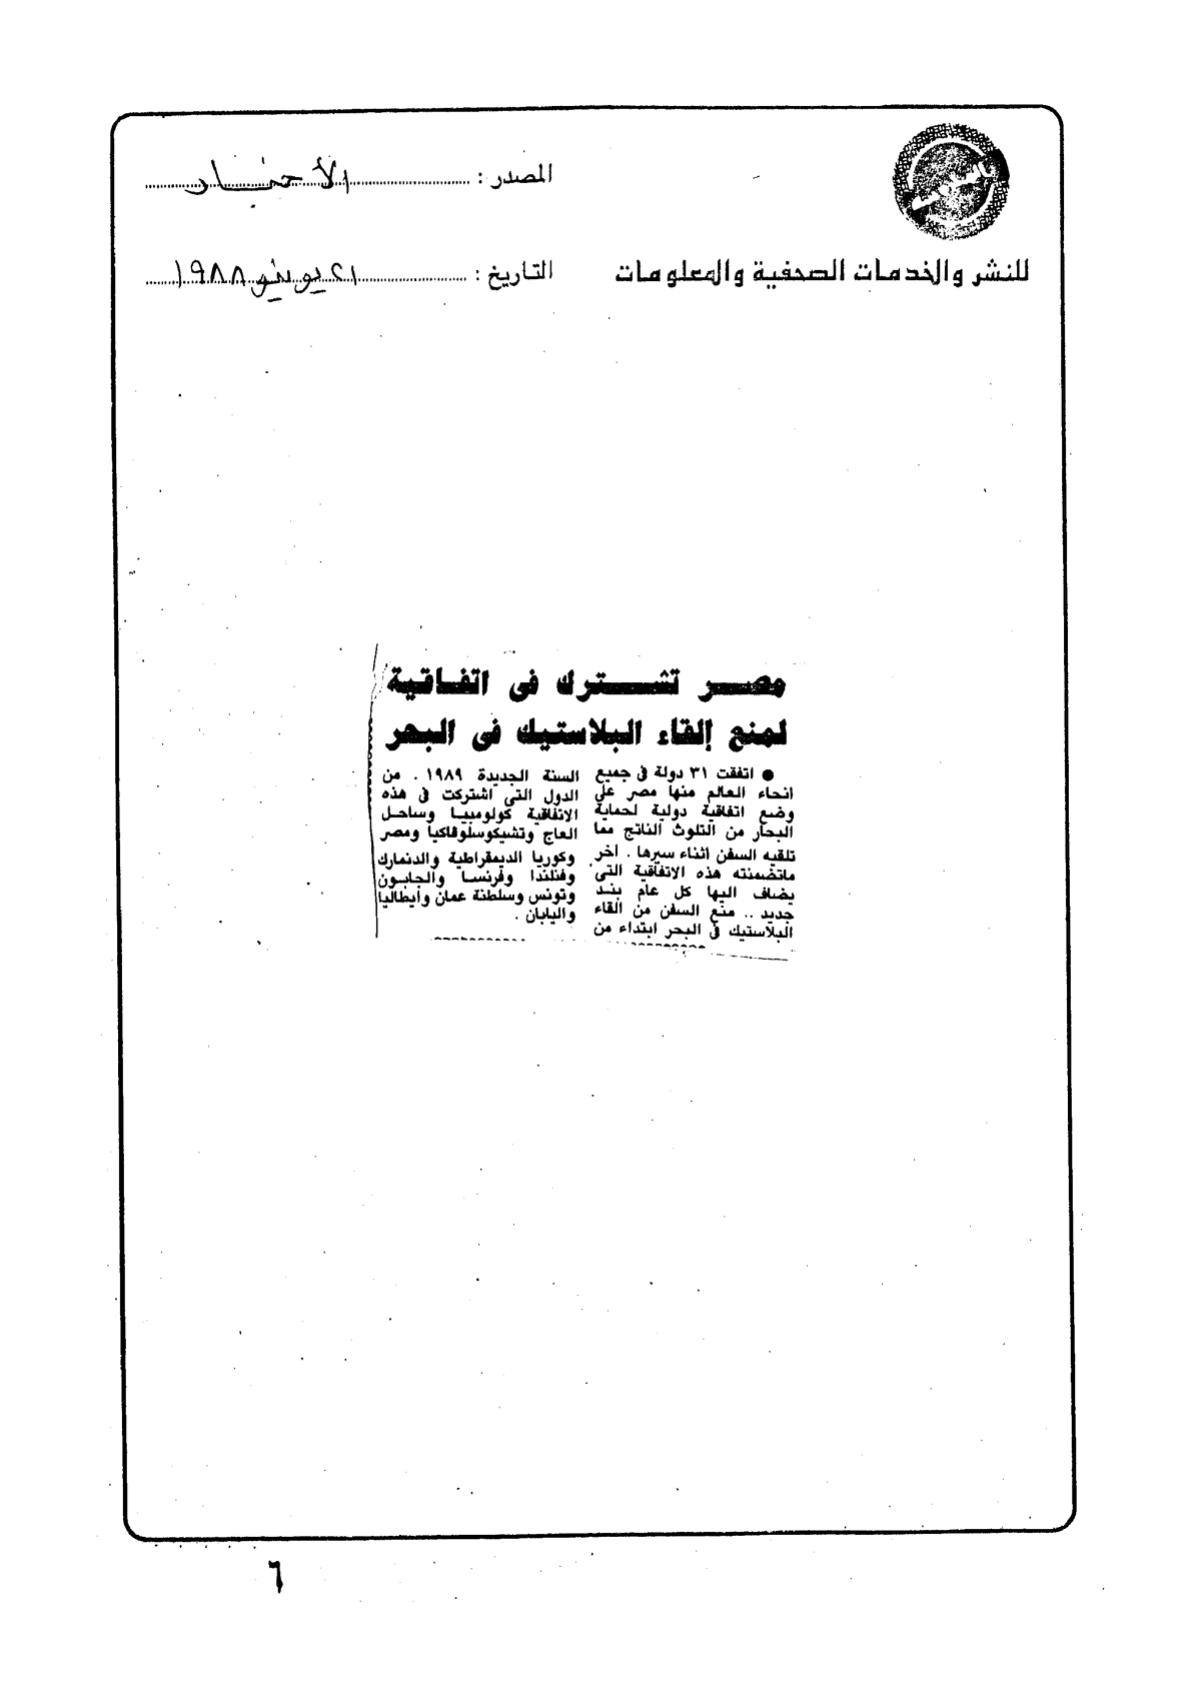 المصدر : الأخبار
للنشر والخدمات الصحفية والمعلومات
التاريخ : ٢١ يونيو ١٩٨٨
مصر تشترك فى اتفاقية
لمنع إلقاء البلاستيك فى البحر
● اتفقت ٣١ دولة فى جميع
انحاء العالم منها مصر على
وضع اتفاقية دولية لحماية
البحار من التلوث الناتج مما
تلقيه السفن اثناء سيرها . اخر
ماتضمنته هذه الاتفاقية التى
يضاف اليها كل عام بند
جديد .. منع السفن من القاء
البلاستيك فى البحر ابتداء من
السنة الجديدة ١٩٨٩ . من
الدول التى اشتركت فى هذه
الاتفاقية كولومبيا وساحل
العاج وتشيكوسلوفاكيا ومصر
وكوريا الديمقراطية والدنمارك
وفنلندا وفرنسا والجابون
وتونس وسلطنة عمان وايطاليا
واليابان .
٦